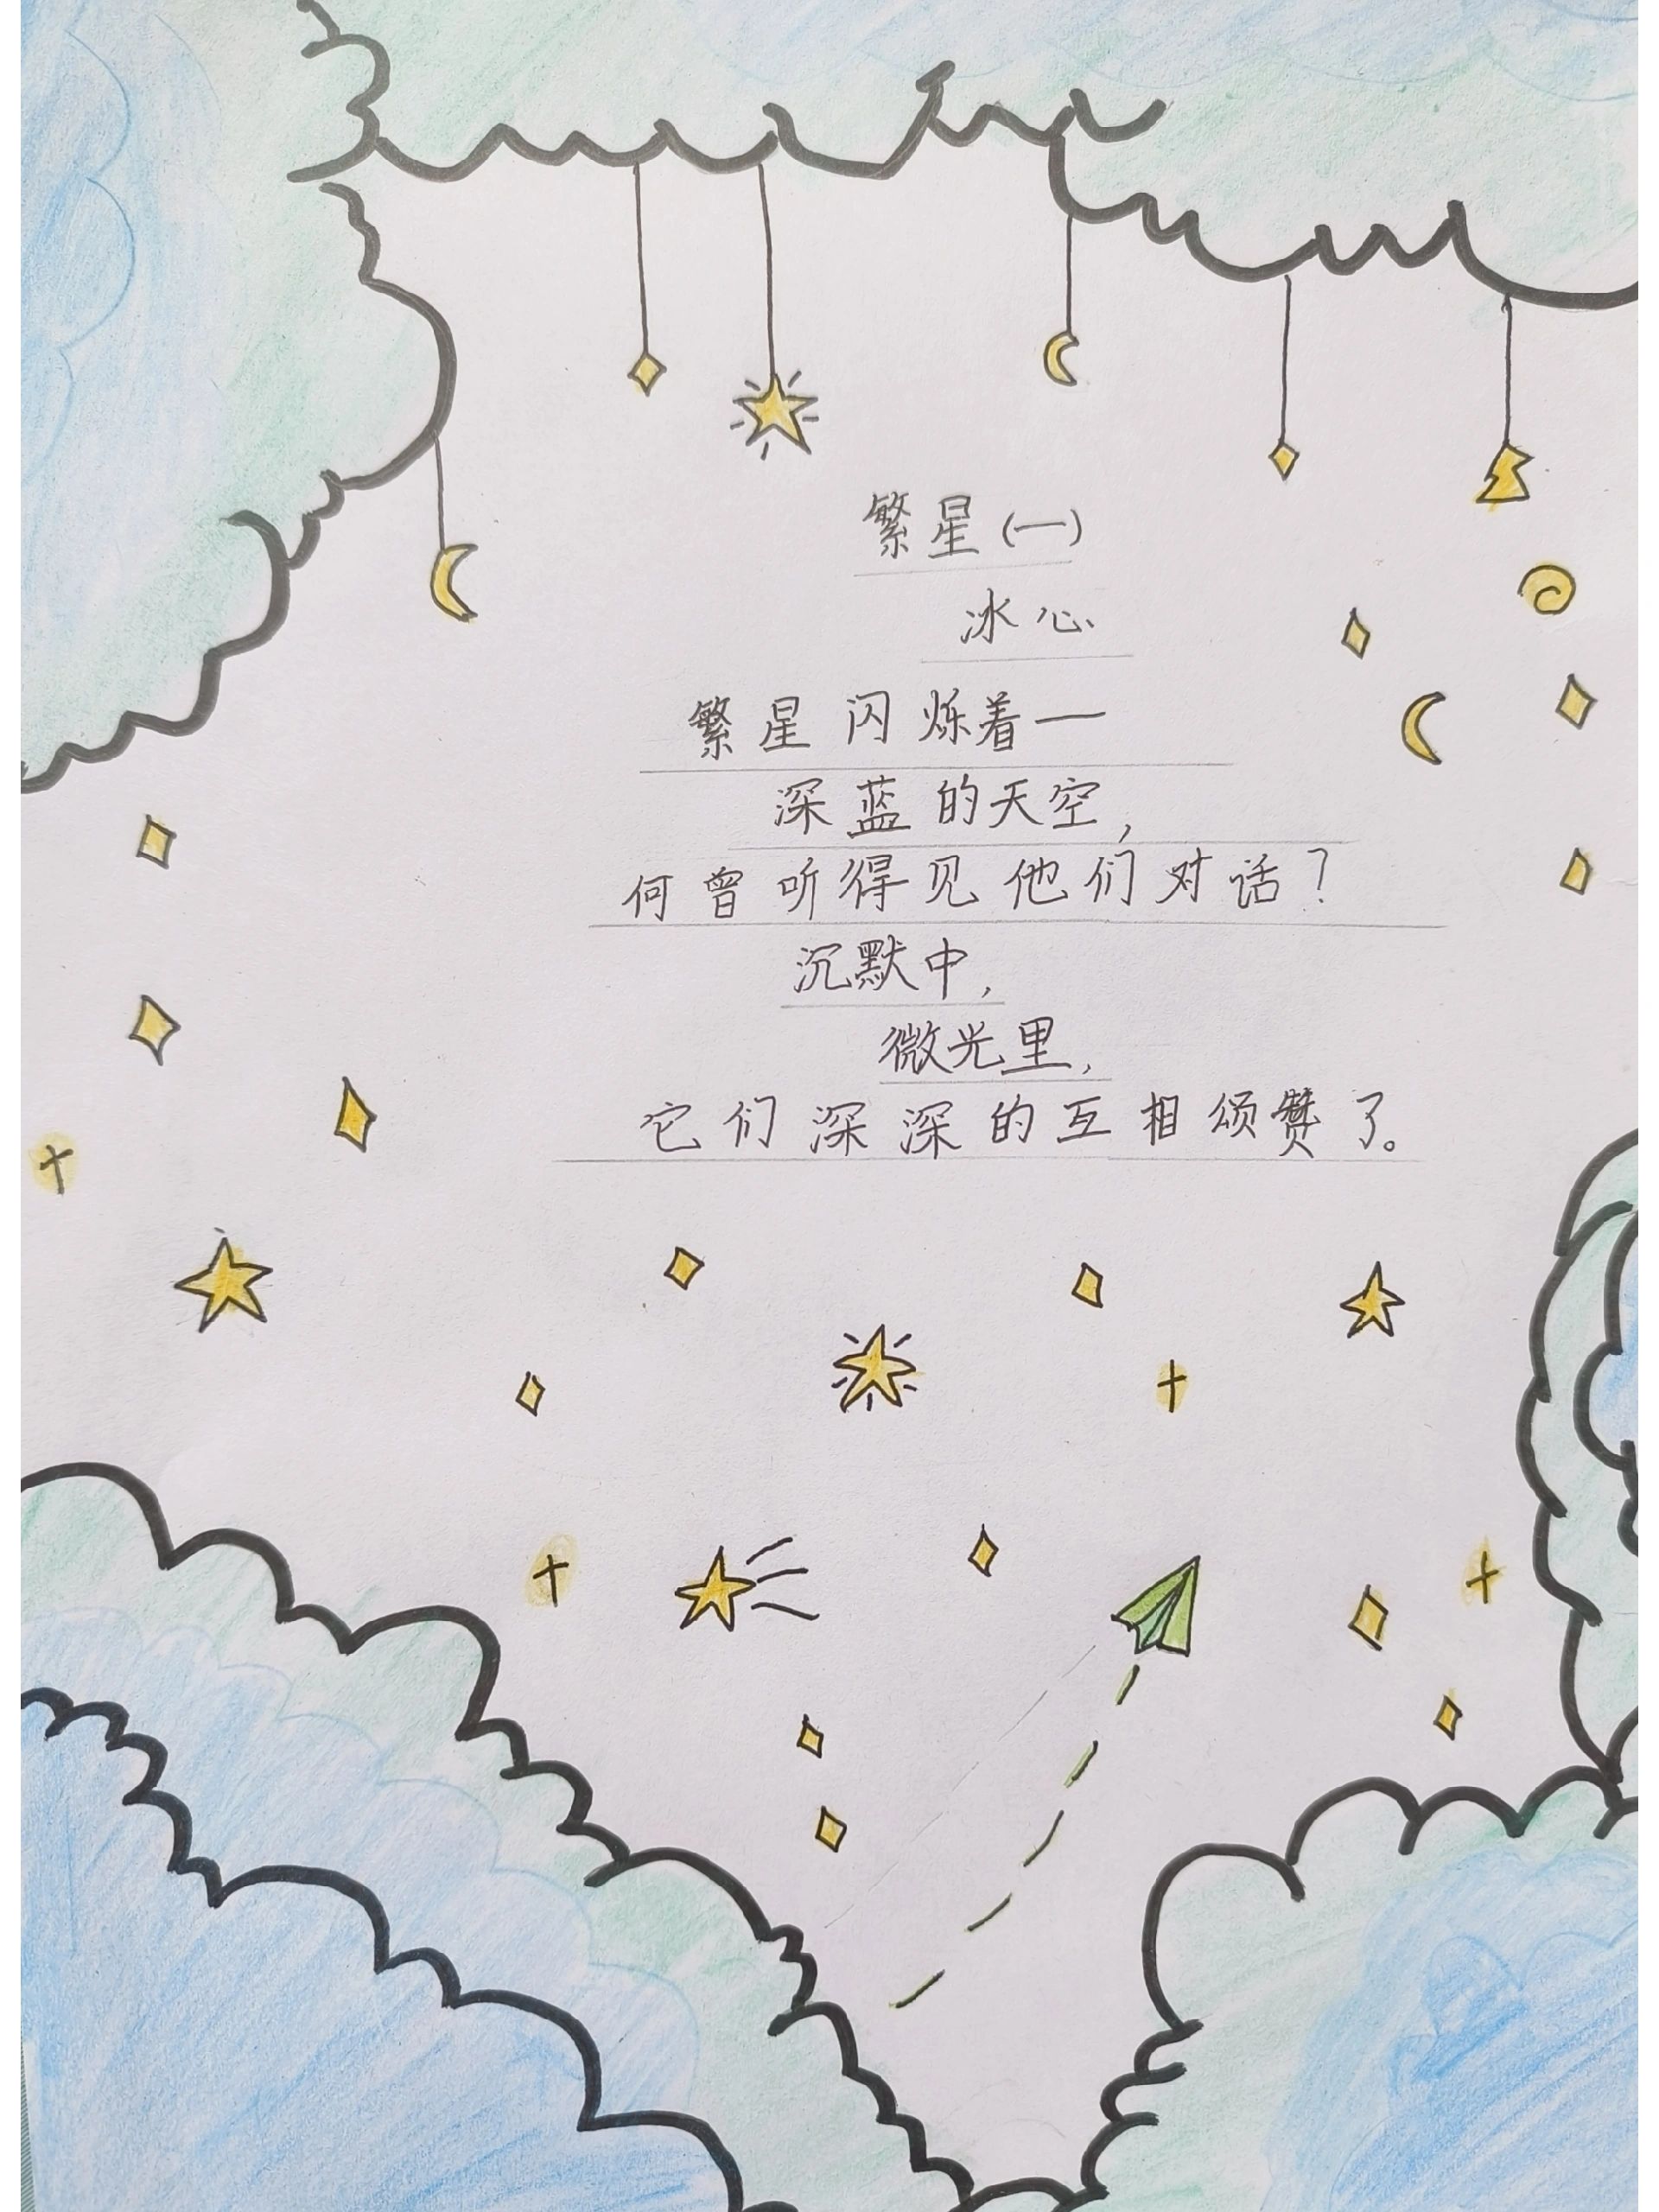 繁星(一)
冰心
繁星闪烁着一
深蓝的天空,
何曾听得见他们对话?
沉默中,
微光里,
它们深深的互相颂赞了。